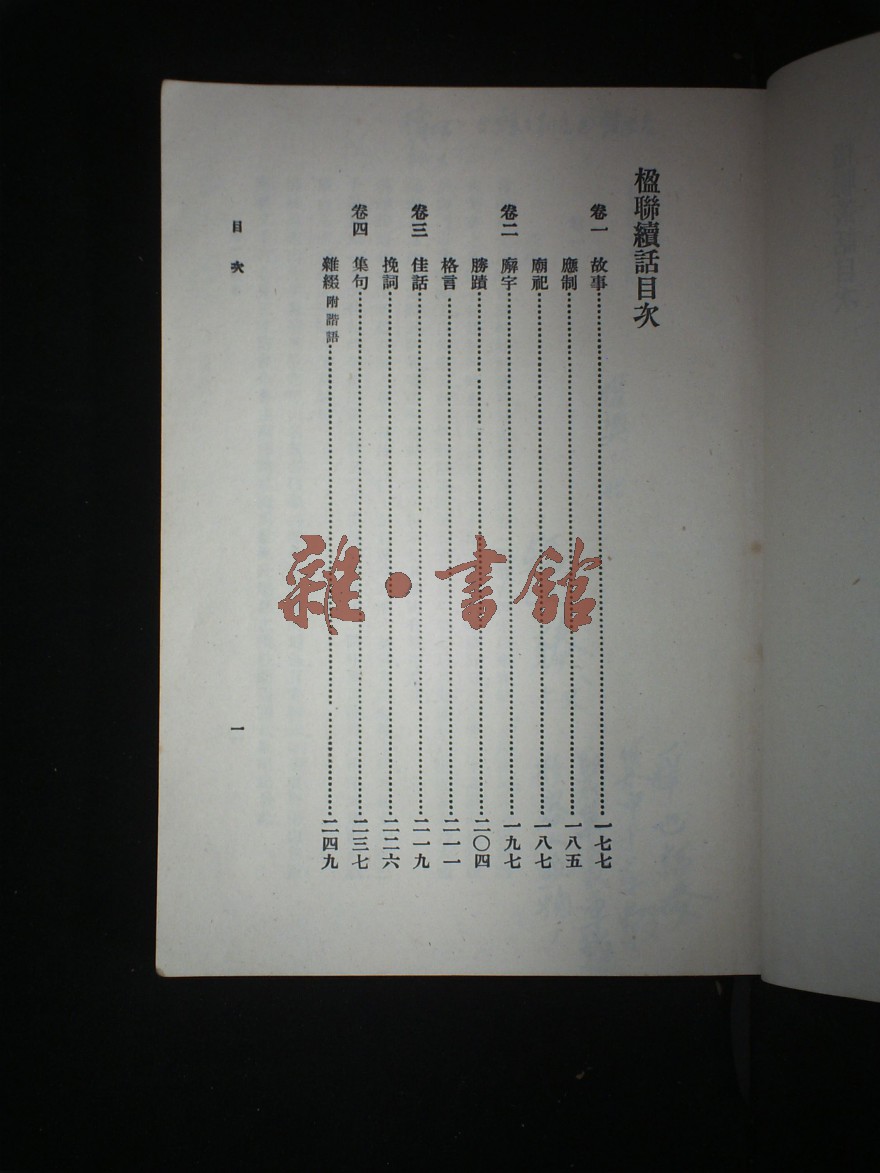 楹聯續話目次
卷一 故事……一七七
應制……一八五
廟祀……一八七
卷二 廨宇……一九七
勝蹟……二〇四
格言……二一一
卷三 佳話……二一九
挽詞……二二六
卷四 集句……二三七
雜綴附諧語……二四九
目次
一
雜・書館